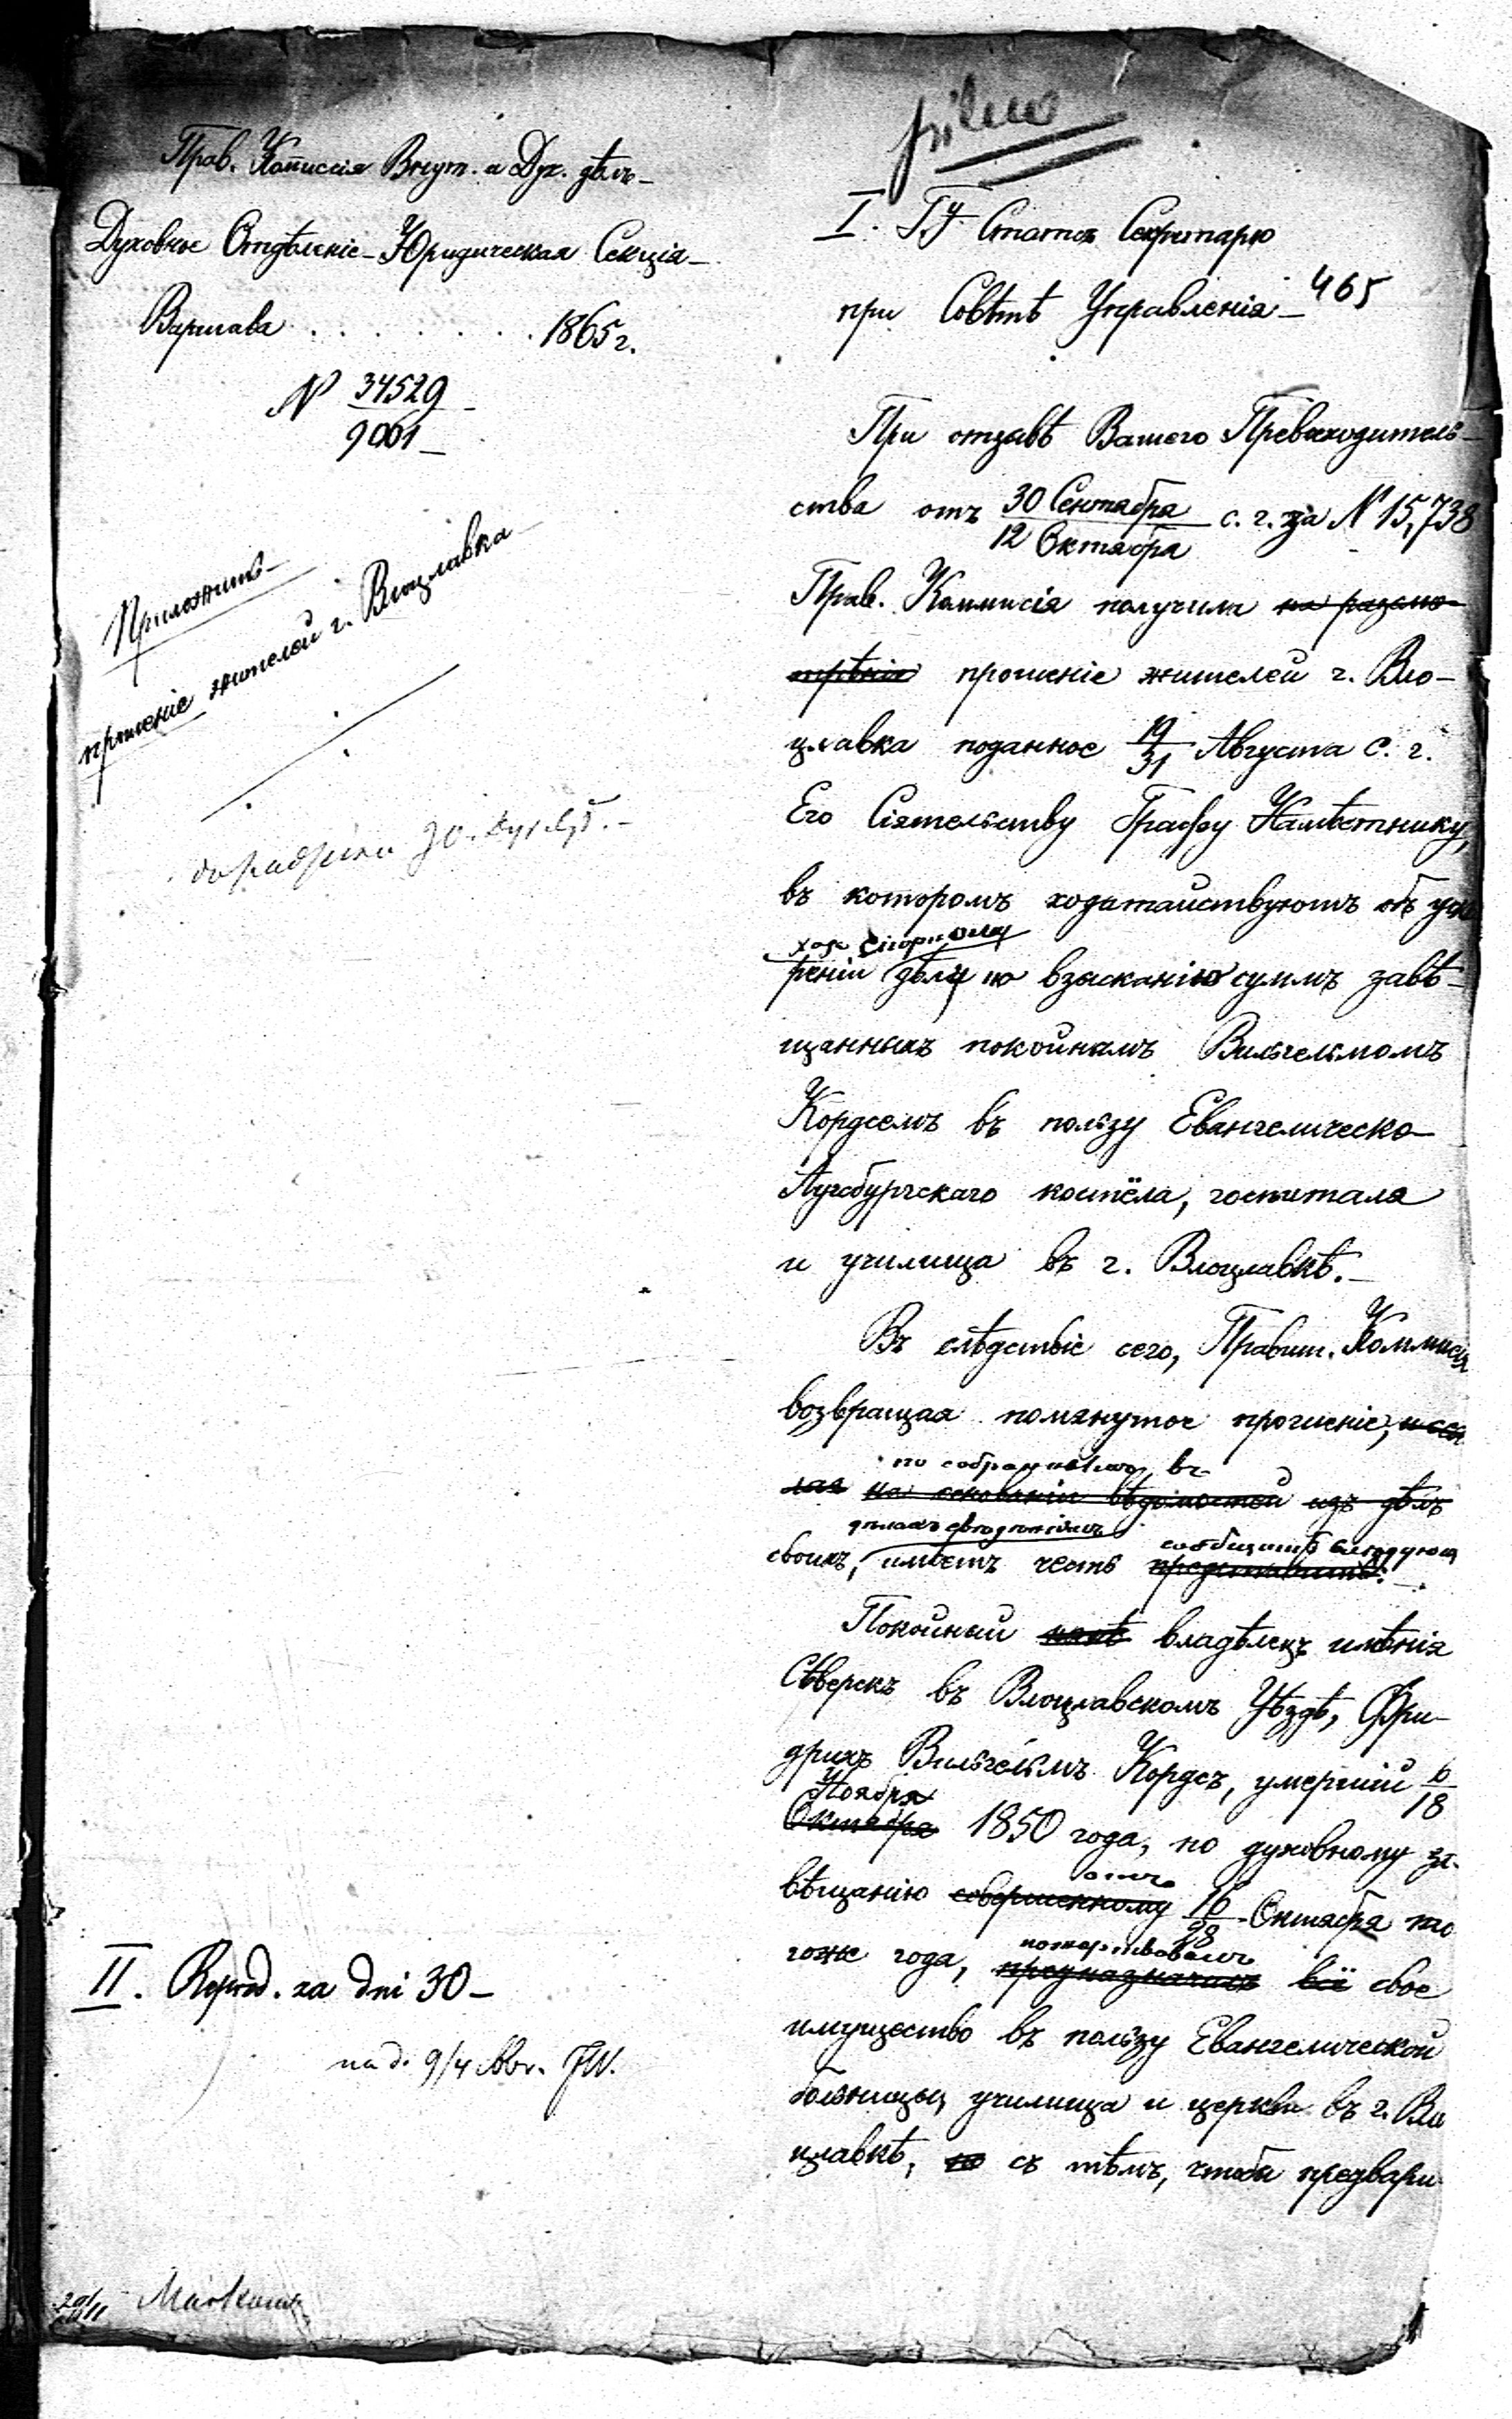 Прав. Коммиссія Внут. и Дух. дѣлъ
Духовное Отдѣленіе - Юридическая Секція -
Варшава . . . . . . . 1865 г.
N 34529
9001
Приложить
прошеніе жителей г. Влоцлавка
II. Reprod. za dni 30 -
na d. 9/4
pilno
I. Гу Статсъ Секретарю
при Совѣтѣ Управленія - 465
При отзывѣ Вашего Превосходитель-
ства отъ 30 Сентября / 12 Октября с. г. за N 15,738
Прав. Коммисія получила на разсмо-
трѣніе прошеніе жителей г. Вло-
цлавка поданное 19/31 Августа с. г.
Его Сіятельству Графу Намѣстнику,
въ которомъ ходатайствуютъ объ уско
реніи дѣлу по взысканію суммъ завѣ-
щанныхъ покойнымъ Вильгельмомъ
Кордсемъ въ пользу Евангелическо-
Аугсбургскаго костёла, госпиталя
и училища въ г. Влоцлавкѣ. -
Въ слѣдствіе сего, Правит. Коммисія
возвращая помянутое прошеніе,
по собраннымъ въ
лая на основаніи вѣдомостей изъ дѣлъ
дѣлахъ свѣдѣніямъ
сообщить слѣдующ
своихъ, имѣетъ честь представить: -
Покойный владѣлецъ имѣнія
Сѣверскъ въ Влоцлавскомъ Уѣздѣ, Фри-
дрихъ Вильгельмъ Кордсъ, умершій 6/18
Ноября
Октября 1850 года, по духовному за-
отъ
вѣщанію совершенному 16/28 Октября то
пожертвовалъ
гоже года, предназначилъ всё свое
имущество въ пользу Евангелической
больницы, училища и церкви въ г. Вло
цлавкѣ, но съ тѣмъ, чтобы предвари